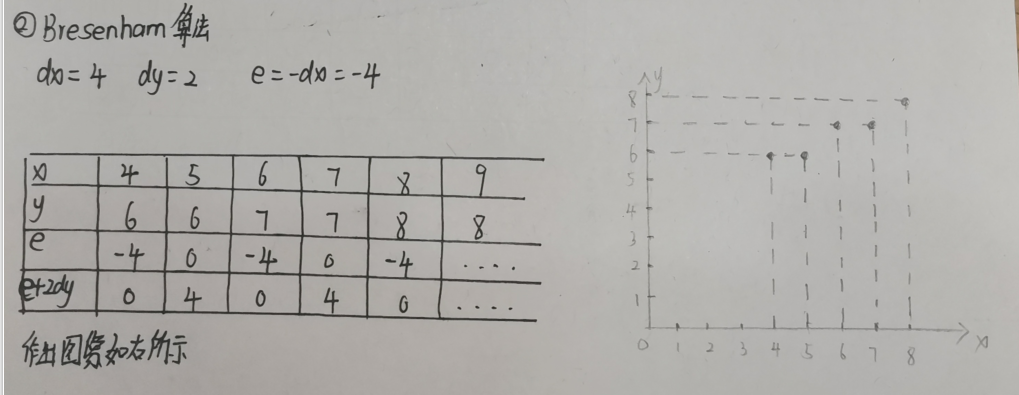 ② Bresenham 算法
dx = 4 dy = 2 e = -dx = -4
x 4 5 6 7 8 9
y 6 6 7 7 8 8
e -4 0 -4 0 -4 ....
e+2dy 0 4 0 4 0 ....
作出图像如右所示
y
8
7
6
5
4
3
2
1
0 1 2 3 4 5 6 7 8 x